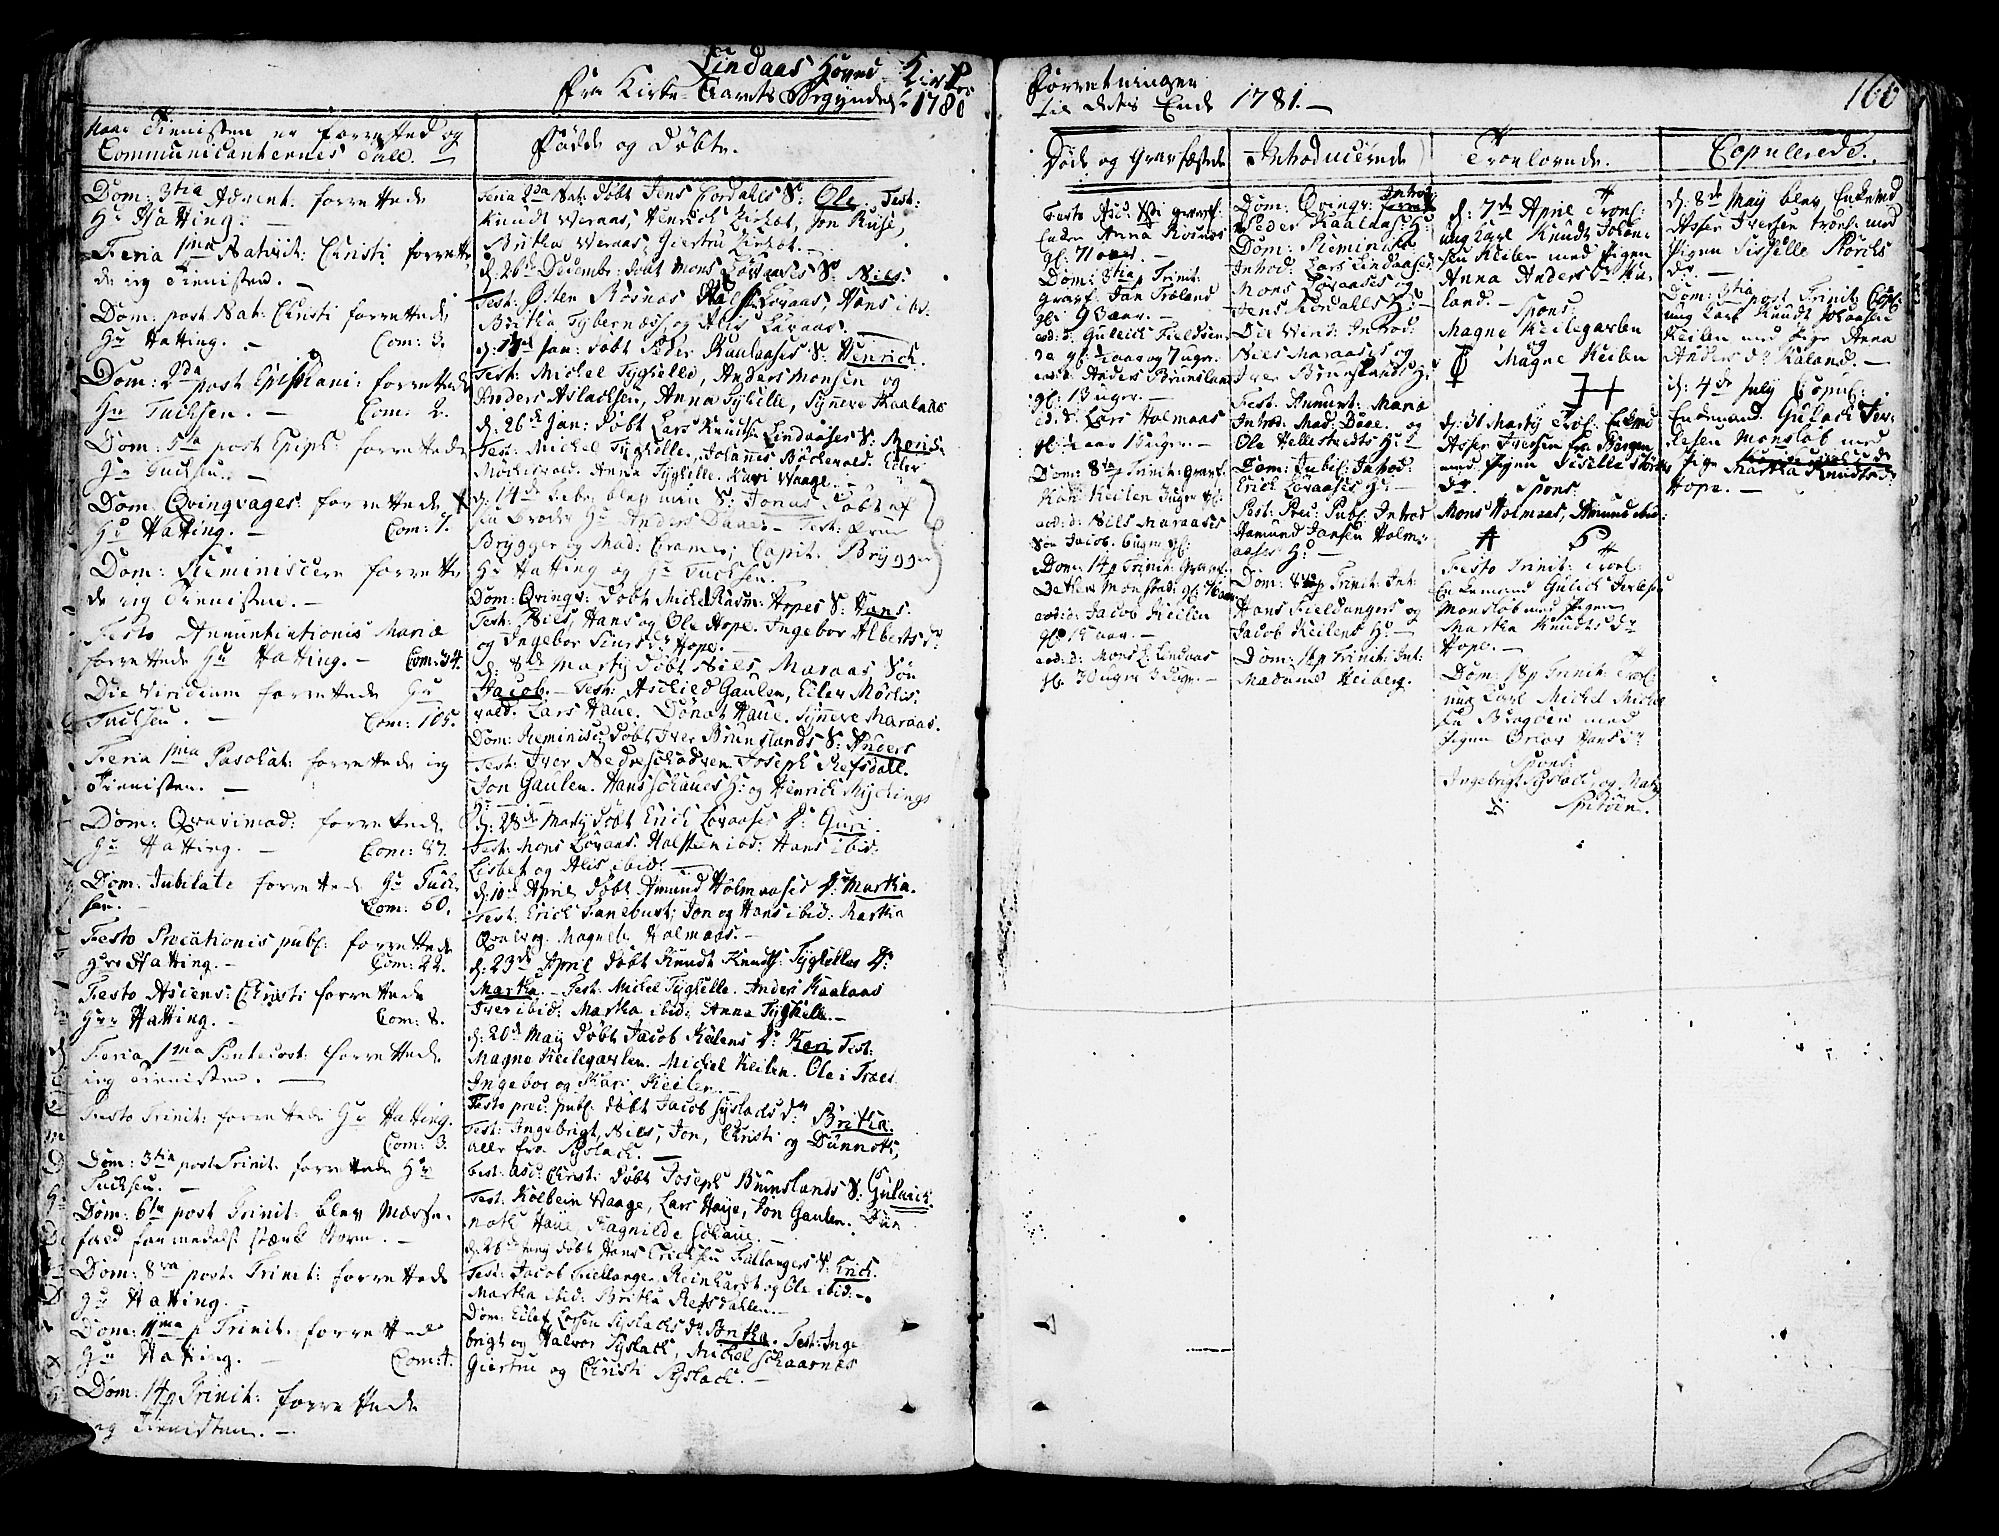 Lindaas Hoved-Kirkes
Fra Kirke-Aarets Begyndelse 1780
Naar Tienisten er forretted og
Communicanternes Tall.
Dom: 3tia Advent: forrettede
Hr Hatting. –
Feria 1ma Nativit: Christi forrette
de ieg Tienisten. –
Dom: post Nat: Christi forrettede
Hr Hatting. – Com: 3.
Dom: 2da post Epiphani: forrettede
Hr Tuchsen. – Com: 2.
Dom: 5ta post Epiph: forrettede
Hr Tuchsen. –
Dom: Qvingvages: forrettede
Hr Hatting. – Com: 7.
Dom: Reminiscere forrette
de ieg Tienisten. –
Festo Annuntiationis Mariæ
forrettede Hr Hatting. – Com: 34.
Die Viridium forrettede Hr
Tuchsen. – Com: 105.
Feria 1ma Paschat: forrettede ieg
Tienisten. –
Dom: Qvasimod: forrettede
Hr Hatting. – Com: 87.
Dom: Jubilate forrettede Hr Tuch-
sen. – Com: 60.
Festo Precationis publ: forrettede
Hrr Hatting. – Com: 22.
Festo Ascens: Christi forrettede
Hrr Hatting. – Com: 8.
Feria 1ma Pentecost: forrettede
ieg Tienisten. –
Festo Trinit: forrettede Hr Hatting.
Com: 3.
Dom: 3tia post Trinit: forrettede Hr
Tuchsen. –
Dom: 6ta post Trinit: blev Messe-
fald formedelst stærk Storm. –
Dom: 8va post Trinit: forrettede
Hr Hatting. –
Dom: 11ma p Trinit: forrettede
Hr Hatting. – Com: 4.
Dom: 14 p Trinit: forrettede
ieg Tienisten. –
Fødde og Døbte.
Feria 2da Nat: døbt Jens Cordales S: Ole. Test:
Knudt Veraas, Henrich Kirket, Jon Riise,
Britha Veraas, Giertru Kirket. –
d: 26de Decembr: døbt Mons Lovaases S: Nils.
Test: Østen Rosnæs, Halst: Lovaas, Hans ibd:
Britha Fyberness, og Alis Lovaas. –
Jan: døbt Peder Kaalaases S: Henrich.
Test: Michel Tyghelle, Anders Monsen og
Anders Aslachsen, Anna Tyhille, Synneve Kaalaas
d: 26de Jan: døbt Lars Knudts: Lindaases S: Merich
Test: Michel Tyghelle, Johanes Böckevold. Eiler
Mörchevold. Anna Tyghelle. Kari Waage. –
d: 14de Febr: blev min S: Jonas døbt af
sin Broder Hr Anders Daae – Test: Frue
Brygger og Mad: Cramer; Capit: Brygger
Hr Hatting og Hr Tuchsen.
Dom: Qvings: døbt Michel Rasm: Hopes S: Hans.
Test: Nils, Hans og Ole Hope. Ingebor Alberts dr
og Ingebor Siurs dr Hope. –
d: 8de Martij døbt Nils Maraas Søn
Jacob. – Test: Aschied Gaulen, Eiler Mörche-
vold. Lars Haue. Dönat Haue. Synneve Maraas.
Dom: Reminisc: døbt Iver Brunslands S: Anders
Test: Iver Nedreschodven. Joseph Refsdall.
Jon Gaulen. Hans Schaues H: og Henrich Mychings
H: –
d: 28de Martij døbt Erich Lovaases Dr Guri.
Test: Mons Lovaas. Halsten ibd: Hans ibid:
Lisbet og Alis ibid: –
d: 10de April døbt Amund Holmaases Dr Martha.
Test: Erich Fanebust; Jon og Hans ibid: Martha
Qvalvog. Magnele Holmaas. –
d: 23de April døbt Knudt Knudts: Tyghelles Dr
Martha. – Test: Michel Tyghelle. Anders Kaalaas
Iver ibid: Martha ibid: Anna Tyghelle. –
d: 20de May døbt Jacob Keilens Dr Kari Test:
Magne Keilegavlen. Michel Keilen. Ole i Træet.
Ingebor og Kari Keilen. –
Festo prec: publ: døbt Jacob Syslachs dr Britha.
Test: Ingebrigt, Nils, Jon, Christi og Dunnoth,
alle fra Syslach. –
Fest: Asc: Christi: døbt Joseph Brunslands S: Gulach.
Test: Kolbein Waage, Lars Haue, Jon Gaulen. Dun
noth Haue, Ragnilde Schaue. –
d: 26de døbt Hans Erichsen Fieldangers S: Erich.
Test: Jacob Fieldanger, Reinhardt og Ole ibid: –
Martha ibid: Britha Refsdahlen. –
Dom: Eilef Larsen Syslachs dr Britha. Test: Inge
brigt og Halvor Syslach, Michel Schaarnes
Giertru og Christi Syslach. –
Forretninger
til dets Ende 1781. –
166
Døde og Gravfæstede
Festo Asc: Xsti gravf:
Enken Anna Rosnes
gl: 71 aar. –
Dom: 3tia Trinit:
gravf: Jan Træland
gl: 93 aar. –
eod: d: Gulich
gl: ½ aar og 7 uger.
eod: d: Anders Brunsland
gl: 13 uger. –
eod: d: Lars Holmaas
gl: ½ aar 1 uger. –
Dom: 8va Trinit: Gravf:
Kari Keilen 3 uger gl:
eod: d: Nils Maraases
Søn Jacob. 6 uger gl:
Dom: 14 p Trinit: Gravf:
Dethlev Monstad: gl: 76 aar
eod: d: Jacob Keilen
gl: 12 aar. –
eod: d: Mons L: Lindaas
gl: 30 uger 3 Dage. –
Introducerede
Dom: Qvingv: Introd:
Peder Kaalaas H:
Dom: Reminisc:
Introd: Lars Lindaases
Mons Lovaases og
Jens Cordalls H: –
Die Virid: Introd:
Nils Maraases og
Iver Brunslands H:
Fest: Anunt: Mariæ
Introd: Mad: Daae. og
Ole Hellestvedts H: –
Dom: Jubil: Introd:
Erich Lovaases H: –
Fest: Prec: Publ: Introd
Hamund Jansen Holm-
aases H: –
Dom: 8 p Trinit: Int:
Hans Fieldangers og
Jacob Keilens H: –
Dom: 14 p Trinit: Int:
Madame Heiberg.
Trolovede.
d: 7de April Trol:
ung Karl Knudt Johan-
sen Keilen med Pigen
Anna Anders dr Ha-
land. – Spons:
Magne Keilegavlen
og
Magne Keilen
d: 31 Martij Trol: Enkemd
Asser Iversen fra Bergen
med Pigen Siselle Störchs
dr. Spons:
Mons Holmaas, Amund ibid:
Festo Trinit: Trol:
Enkemand Gulich Terlefsen
Monslob med Pigen
Martha Knudts dr
Hope. –
Dom: 18 p Trinit: Trol:
ung Karl Michel Michel
sen med
Pigen Orlov Hans dr
Spons:
Ingebrigt Syslach og
Spidøen.
Copulerede.
d: 8de May blev Enkemd
Asser Iversen trol: med
Pigen Sisselle Storchs
dr. –
Dom: 3tia post Trinit: Copl:
ung Karl Knudt Johansen
Keilen med Pige Anna
Anders dr Haland. –
d: 4de July Copul:
Enkemand: Gulach Ter-
lefsen Monslob med
Pige Martha Knudts dr
Hope. –